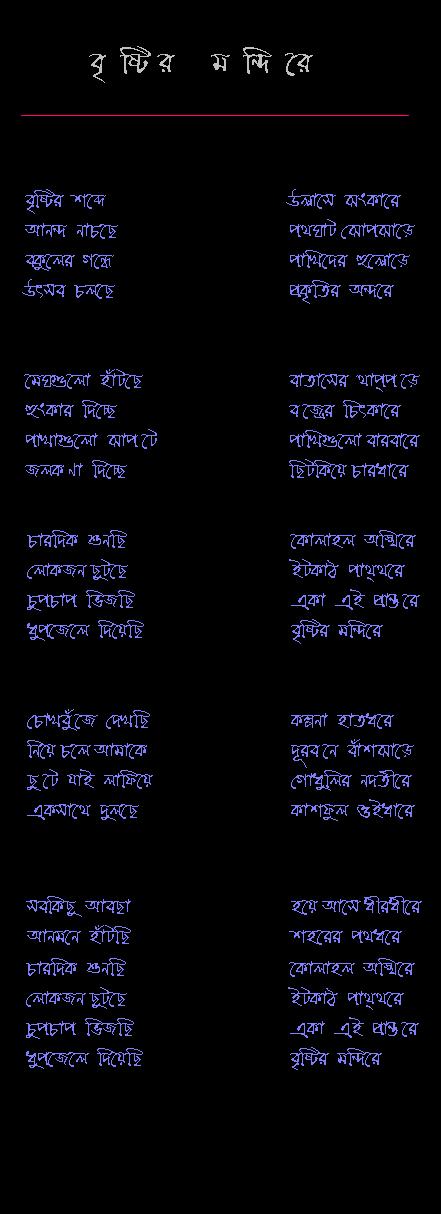 বৃষ্টির মন্দিরে
বৃষ্টির শব্দে উল্লাসে ঝংকারে
আনন্দ নাচছে পথঘাট ঝোপঝাড়ে
বকুলের গন্ধে পাখিদের হুল্লোড়ে
উৎসব চলছে প্রকৃতির অন্দরে
মেঘগুলো হাঁটছে বাতাসের থাপ্পড়ে
হুংকার দিচ্ছে বজ্রের চিৎকারে
পাখাগুলো ঝাপটে পাখিগুলো বারবারে
জলকণা দিচ্ছে ছিটকিয়ে চারধারে
চারদিক শুনছি কোলাহল অস্থিরে
লোকজন ছুটছে ইটকাঠ পাথ্থরে
চুপচাপ ভিজছি একা এই প্রান্তরে
ধুপজেলে দিয়েছি বৃষ্টির মন্দিরে
চোখবুঁজে দেখছি কল্পনা হাতধরে
নিয়ে চলে আমাকে দূরবনে বাঁশঝাড়ে
ছুটে যাই লাফিয়ে গোধুলির নদতীরে
একসাথে দুলছে কাশফুল দুইধারে
সবকিছু আবছা হয়ে আসে ধীরধীরে
আনমনে হাঁটিছি শহরের পথধরে
চারদিক শুনছি কোলাহল অস্থিরে
লোকজন ছুটছে ইটকাঠ পাথ্থরে
চুপচাপ ভিজছি একা এই প্রান্তরে
ধুপজেলে দিয়েছি বৃষ্টির মন্দিরে